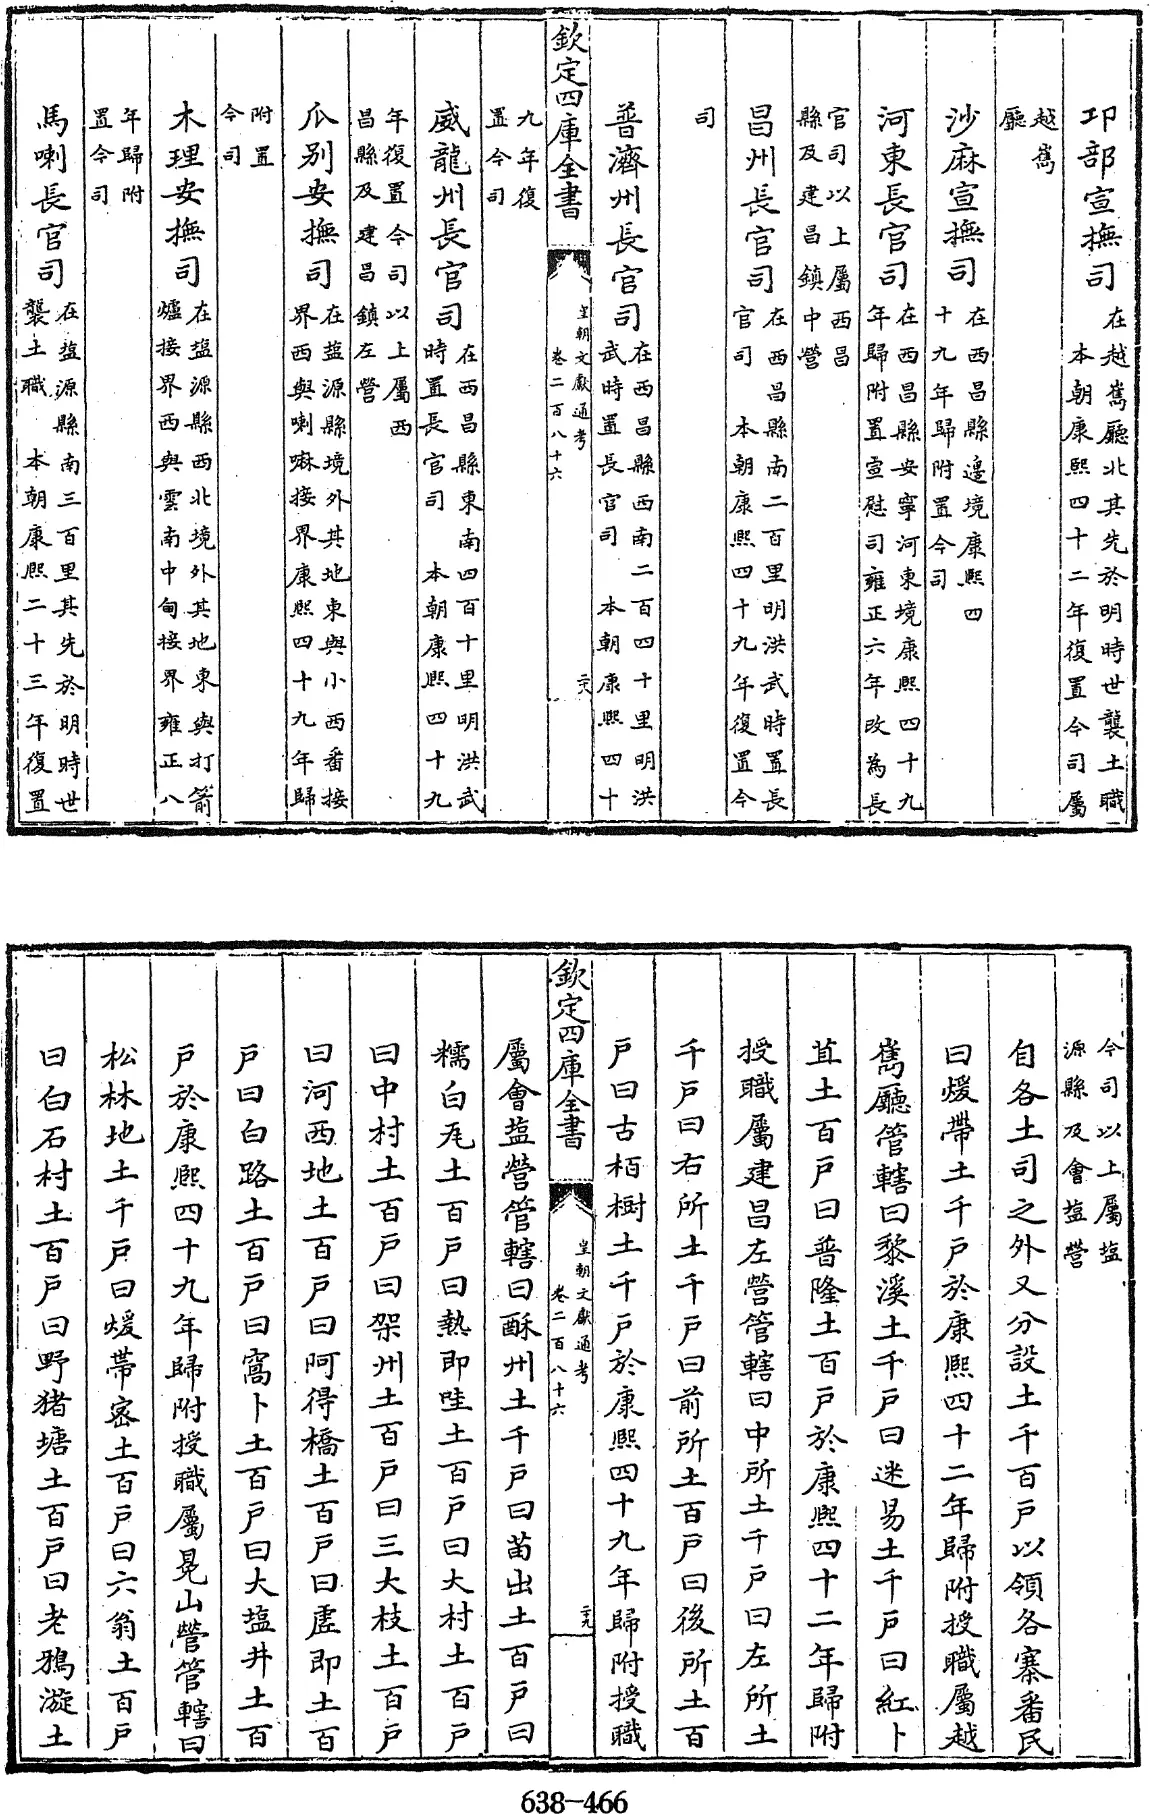 卭部宣撫司
在越嶲廳北其先於明時世襲土職
本朝康熙四十二年復置今司屬
越嶲
廳
沙麻宣撫司
在西昌縣邊境康熙四
十九年歸附置今司
河東長官司
在西昌縣安寧河東境康熙四十九
年歸附置宣慰司雍正六年改為長
官司以上屬西昌
縣及建昌鎮中營
昌州長官司
在西昌縣南二百里明洪武時置長
官司 本朝康熙四十九年復置今
司
普濟州長官司
在西昌縣西南二百四十里明洪
武時置長官司 本朝康熙四十
欽定四庫全書
皇朝文獻通考
卷二百八十六
二十八
九年復
置今司
威龍州長官司
在西昌縣東南四百十里明洪武
時置長官司 本朝康熙四十九
年復置今司以上屬西
昌縣及建昌鎮左營
瓜别安撫司
在塩源縣境外其地東與小西番接
界西與喇嘛接界康熙四十九年歸
附置
今司
木理安撫司
在塩源縣西北境外其地東與打箭
爐接界西與雲南中甸接界雍正八
年歸附
置今司
馬喇長官司
在塩源縣南三百里其先於明時世
襲土職 本朝康熙二十三年復置
今司以上屬塩
源縣及會塩營
自各土司之外又分設土千百戸以領各寨番民
曰煖帶土千戸於康熙四十二年歸附授職屬越
嶲廳管轄曰黎溪土千戸曰迷易土千戸曰紅卜
苴土百戸曰普隆土百戸於康熙四十二年歸附
授職屬建昌左營管轄曰中所土千戸曰左所土
千戸曰右所土千戸曰前所土百戸曰後所土百
戸曰古栢樹土千戸於康熙四十九年歸附授職
欽定四庫全書
皇朝文獻通考
卷二百八十六
二十九
屬會塩營管轄曰酥州土千戸曰苗出土百戸曰
糯白瓦土百戸曰熱即哇土百戸曰大村土百戸
曰中村土百戸曰架州土百戸曰三大枝土百戸
曰河西地土百戸曰阿得橋土百戸曰虚即土百
戸曰白路土百戸曰窩卜土百戸曰大塩井土百
戸於康熙四十九年歸附授職屬冕山營管轄曰
松林地土千戸曰煖帶密土百戸曰六翁土百戸
曰白石村土百戸曰野猪塘土百戸曰老鴉漩土
638-466